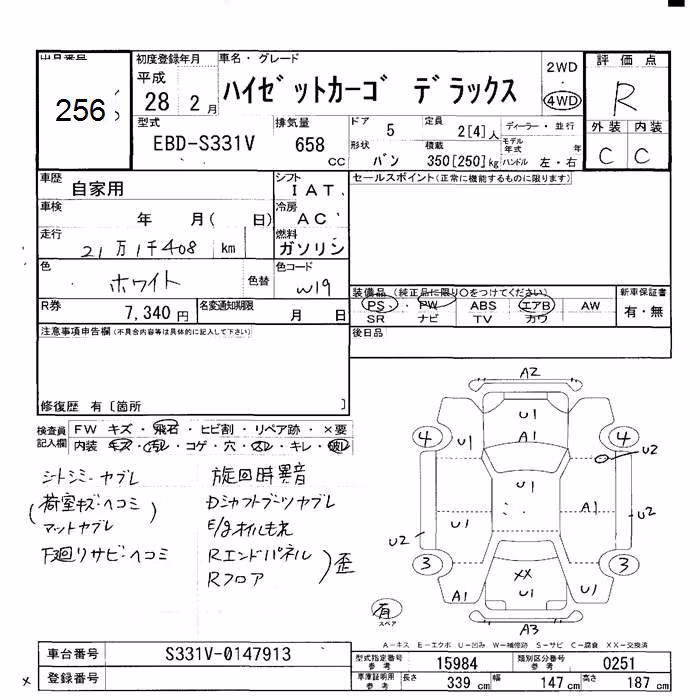 出品番号
256
初度登録年月
平成
28 2 月
車名・グレード
ハイゼットカーゴ デラックス
2WD
4WD
評価点
R
外装 内装
C C
型式
EBD-S331V
排気量
658
CC
ドア 5
形状 バン
定員 2[4]人
積載 350[250]kg
ディーラー・並行
モデル年式 年
ハンドル 左・右
車歴
自家用
シフト
IAT
車検
年 月( 日)
冷房
AC
走行
21万1千408 km
燃料
ガソリン
色
ホワイト
色替
色コード
W19
R券
7,340 円
名変通知期限
月 日
セールスポイント(正常に機能するものに限ります)
装備品(純正品に限り○をつけてください)
PS PW ABS エアB AW
SR ナビ TV カワ
新車保証書
有・無
後日品
注意事項申告欄(不具合内容等は具体的に記入して下さい)
修復歴 有〔箇所 〕
検査員記入欄
FW キズ・飛石・ヒビ割・リペア跡・×要
内装・キズ・汚レ・コゲ・穴・スレ・キレ・破レ
シートシミ・ヤブレ
(荷室キズ・ヘコミ)
マットヤブレ
下廻リサビ・ヘコミ
旋回時異音
Dシャフトブーツヤブレ
E/gオイルもれ
Rエンドパネル
Rフロア
)歪
A2
U1
A1
4 U1 4
U2
U1
U1 A1
U2 U2
3 3
XX
A1 U1 U1
A3
有
スペア
A-キス E-エクボ U-凹み W-補修跡 S-サビ C-腐食 XX-交換済
車台番号
S331V-0147913
登録番号
型式指定番号
参考
15984
類別区分番号
参考
0251
車庫証明用
参考
長さ 339 cm
幅 147 cm
高さ 187 cm
×